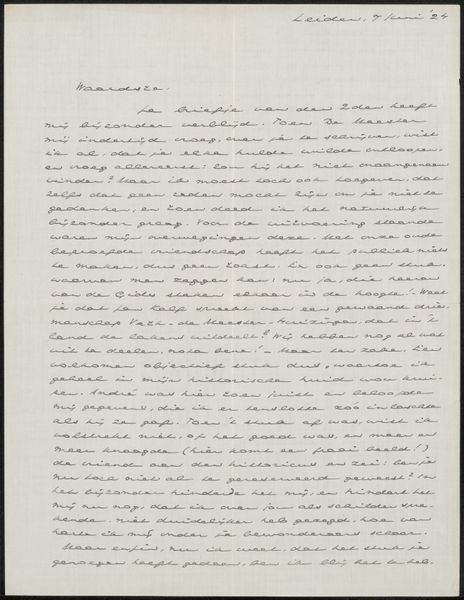 Leiden, 7 Juni '24
Waardste.
Je briefje van den 2den heeft
mij bijzonder verblijd. Toen De Meester
mij indertijd vroeg, over je te schrijven, wist
ik al, dat je elke hulde wilde ontloopen,
en vroeg allereerst: zou hij het niet onaangenaam
vinden? Maar ik moest toch ook toegeven, dat
zelfs dat geen reden mocht zijn om je niet te
gedenken, en toen deed ik het natuurlijk
bijzonder graag. Voor de uitvoering
waren mijn overwegingen deze. Met onze oude
beproefde vriendschap heeft het publiek niets
te maken, dus geen toast. En ook geen stuk,
waarvan men zeggen kan: nu ja, die heeren
van de Gids steken elkaar in de hoogte! Weet
je dat Jan Kalf spreekt van een gewaand drie-
manschap Veth - de Meester - Huizinga, dat in 't
land de lakens uitdeelt? Wij hebben nog al wat
uit te deelen, nota bene! - Maar ter zake. Een
volkomen objectief stuk dus, waartoe ik
geheel in mijn historische huid wou krui-
pen. André was hier toen juist en beloofde
mij gegevens, die ik er tenslotte zoo in laschte
als hij ze gaf. Toen 't stuk af was, wist ik
volstrekt niet, of het goed was, en meer en
meer knaagde (hier komt een fraai beeld!)
de vriend aan den historicus en zei: ben je
nu toch niet al te gereserveerd geweest? In
het bijzonder hinderde het mij, en hindert het
mij nu nog, dat ik over jou als schilder spre-
kende, niet duidelijker heb gezegd, hoe van
harte ik mij onder je bewonderaars schaar.
Maar enfin, nu ik weet, dat het stuk je
genoegen heeft gedaan, ben ik blij het te heb-